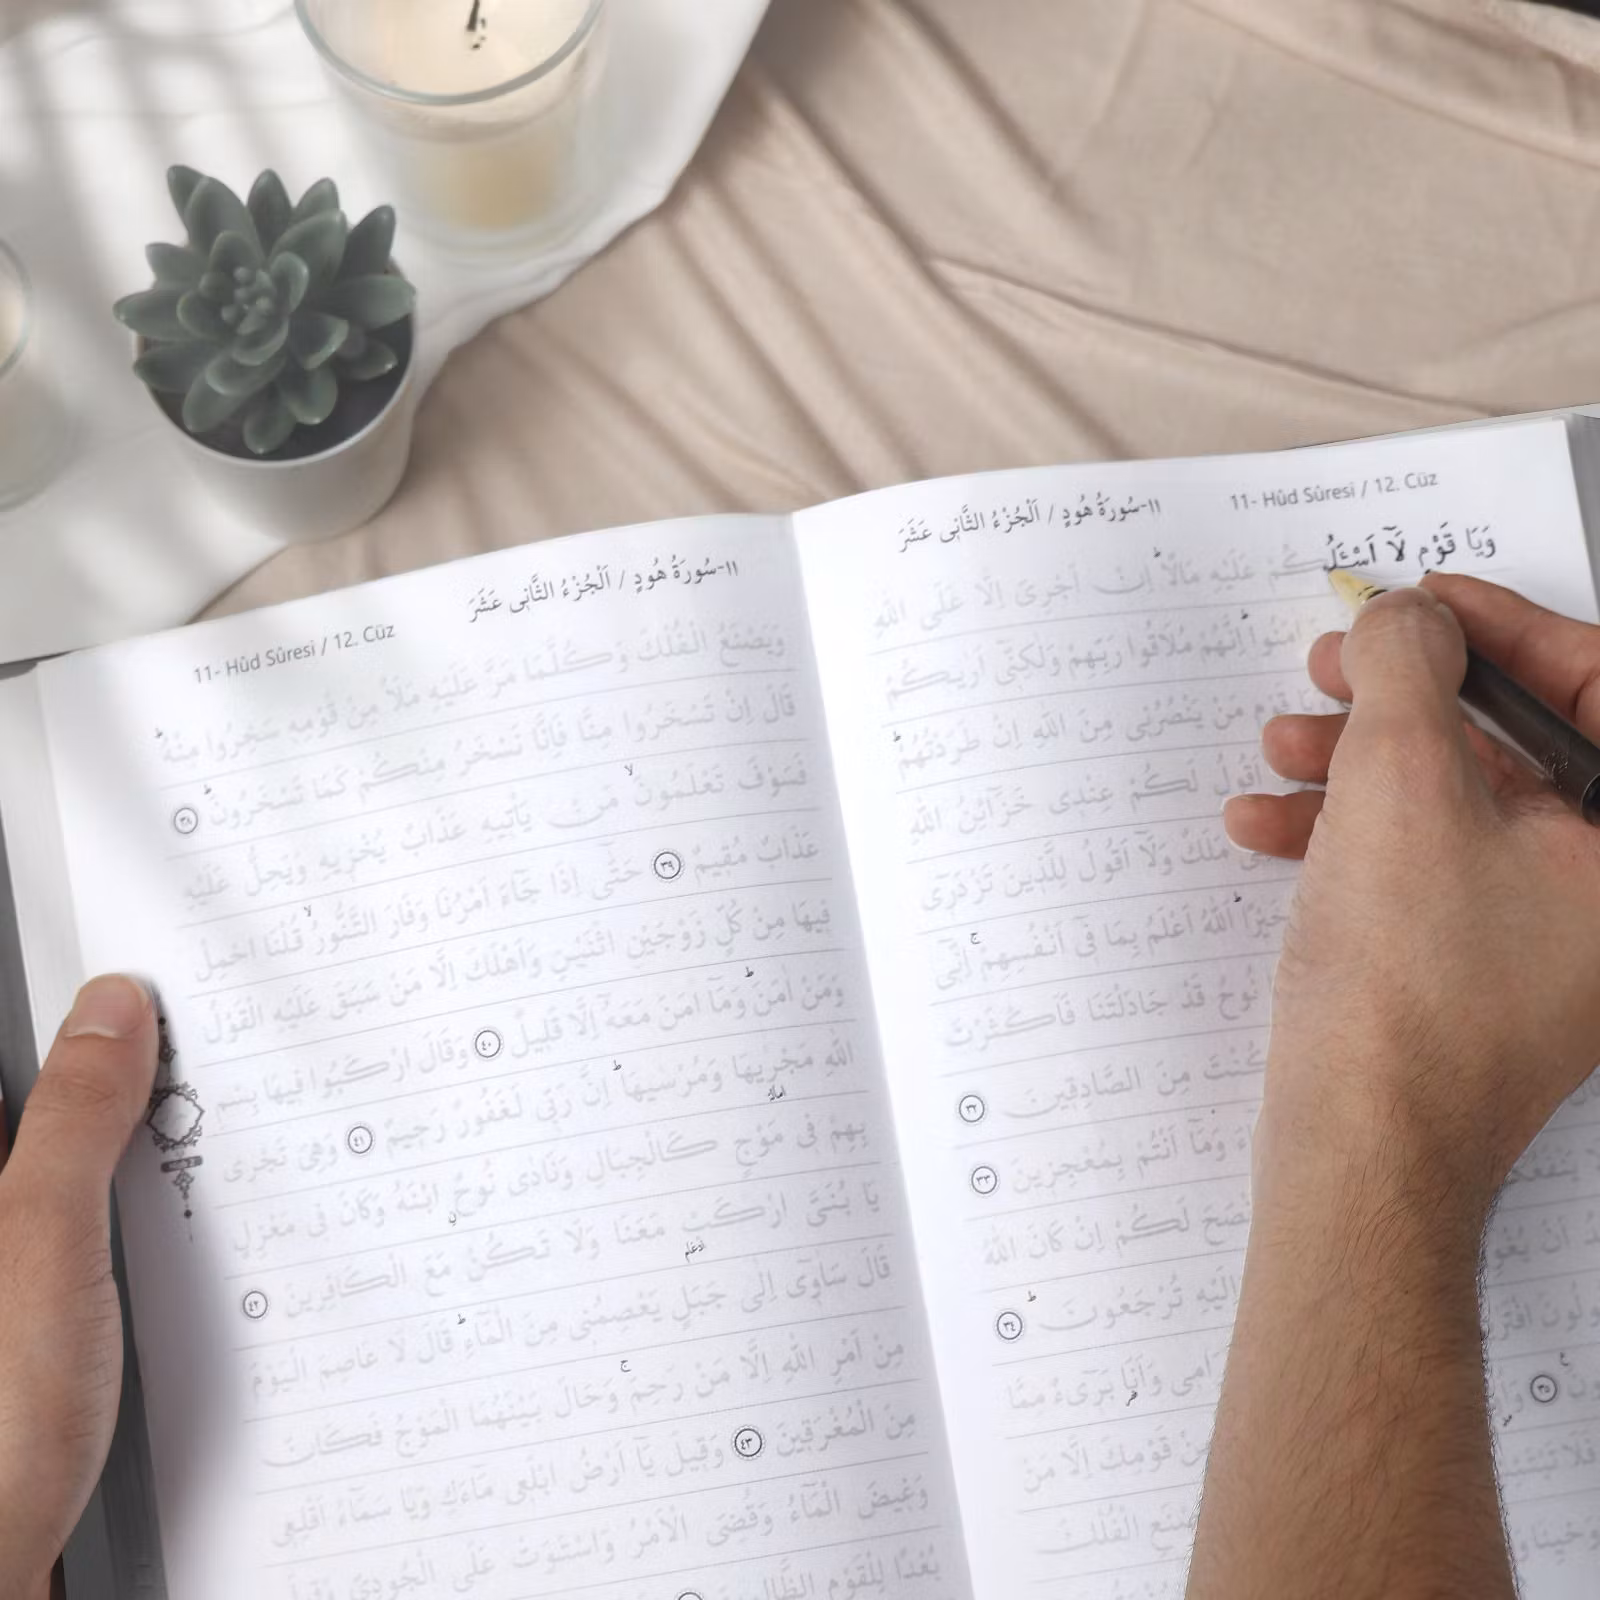 11- Hûd Sûresi / 12. Cüz
١١-سُورَةُ هُودٍ / اَلْجُزْءُ الثَّانِى عَشَرَ
وَيَا قَوْمِ لَآ اَسْـَٔلُكُمْ عَلَيْهِ مَالًاۜ اِنْ اَجْرِىَ اِلَّا عَلَى اللّٰهِ
اٰمَنُواۜ اِنَّهُمْ مُلَاقُوا رَبِّهِمْ وَلٰكِنّٖٓى اَرٰيكُمْ
يَا قَوْمِ مَنْ يَنْصُرُنٖى مِنَ اللّٰهِ اِنْ طَرَدْتُهُمْۜ
اَقُولُ لَكُمْ عِنْدٖى خَزَٓائِنُ اللّٰهِ
مَلَكٌ وَلَٓا اَقُولُ لِلَّذٖينَ تَزْدَرٖٓى
خَيْرًاۜ اَللّٰهُ اَعْلَمُ بِمَا فٖٓى اَنْفُسِهِمْۚ اِنّٖٓى
نُوحُ قَدْ جَادَلْتَنَا فَاَكْثَرْتَ
كُنْتَ مِنَ الصَّادِقٖينَ ٣٢
وَمَٓا اَنْتُمْ بِمُعْجِزٖينَ ٣٣
اَنْصَحَ لَكُمْ اِنْ كَانَ اللّٰهُ
اِلَيْهِ تُرْجَعُونَۜ ٣٤
اِجْرَامٖى وَاَنَا۬ بَرٖٓىءٌ مِمَّا
٣٥
مِنْ قَوْمِكَ اِلَّا مَنْ
وَاصْنَعِ الْفُلْكَ
١١-سُورَةُ هُودٍ / اَلْجُزْءُ الثَّانِى عَشَرَ
11- Hûd Sûresi / 12. Cüz
وَيَصْنَعُ الْفُلْكَ وَكُلَّمَا مَرَّ عَلَيْهِ مَلَاٌ مِنْ قَوْمِهٖ سَخِرُوا مِنْهُۜ
قَالَ اِنْ تَسْخَرُوا مِنَّا فَاِنَّا نَسْخَرُ مِنْكُمْ كَمَا تَسْخَرُونَۜ ٣٨
فَسَوْفَ تَعْلَمُونَۙ مَنْ يَأْتٖيهِ عَذَابٌ يُخْزٖيهِ وَيَحِلُّ عَلَيْهِ
عَذَابٌ مُقٖيمٌ ٣٩ حَتّٰٓى اِذَا جَٓاءَ اَمْرُنَا وَفَارَ التَّنُّورُۙ قُلْنَا احْمِلْ
فٖيهَا مِنْ كُلٍّ زَوْجَيْنِ اثْنَيْنِ وَاَهْلَكَ اِلَّا مَنْ سَبَقَ عَلَيْهِ الْقَوْلُ
وَمَنْ اٰمَنَۜ وَمَٓا اٰمَنَ مَعَهُٓ اِلَّا قَلٖيلٌ ٤٠ وَقَالَ ارْكَبُوا فٖيهَا بِسْمِ
اللّٰهِ مَجْرٰۭيهَا وَمُرْسٰيهَاۜ اِنَّ رَبّٖى لَغَفُورٌ رَحٖيمٌ ٤١ وَهِىَ تَجْرٖى
بِهِمْ فٖى مَوْجٍ كَالْجِبَالِ وَنَادٰى نُوحٌۨ ابْنَهُ وَكَانَ فٖى مَعْزِلٍ
يَا بُنَىَّ ارْكَبْ مَعَنَا وَلَا تَكُنْ مَعَ الْكَافِرٖينَ ٤٢
قَالَ سَاٰوٖٓى اِلٰى جَبَلٍ يَعْصِمُنٖى مِنَ الْمَٓاءِۜ قَالَ لَا عَاصِمَ الْيَوْمَ
مِنْ اَمْرِ اللّٰهِ اِلَّا مَنْ رَحِمَۚ وَحَالَ بَيْنَهُمَا الْمَوْجُ فَكَانَ
مِنَ الْمُغْرَقٖينَ ٤٣ وَقٖيلَ يَٓا اَرْضُ ابْلَعٖى مَٓاءَكِ وَيَا سَمَٓاءُ اَقْلِعٖى
وَغٖيضَ الْمَٓاءُ وَقُضِىَ الْاَمْرُ وَاسْتَوَتْ عَلَى الْجُودِىِّ وَقٖيلَ
بُعْدًا لِلْقَوْمِ